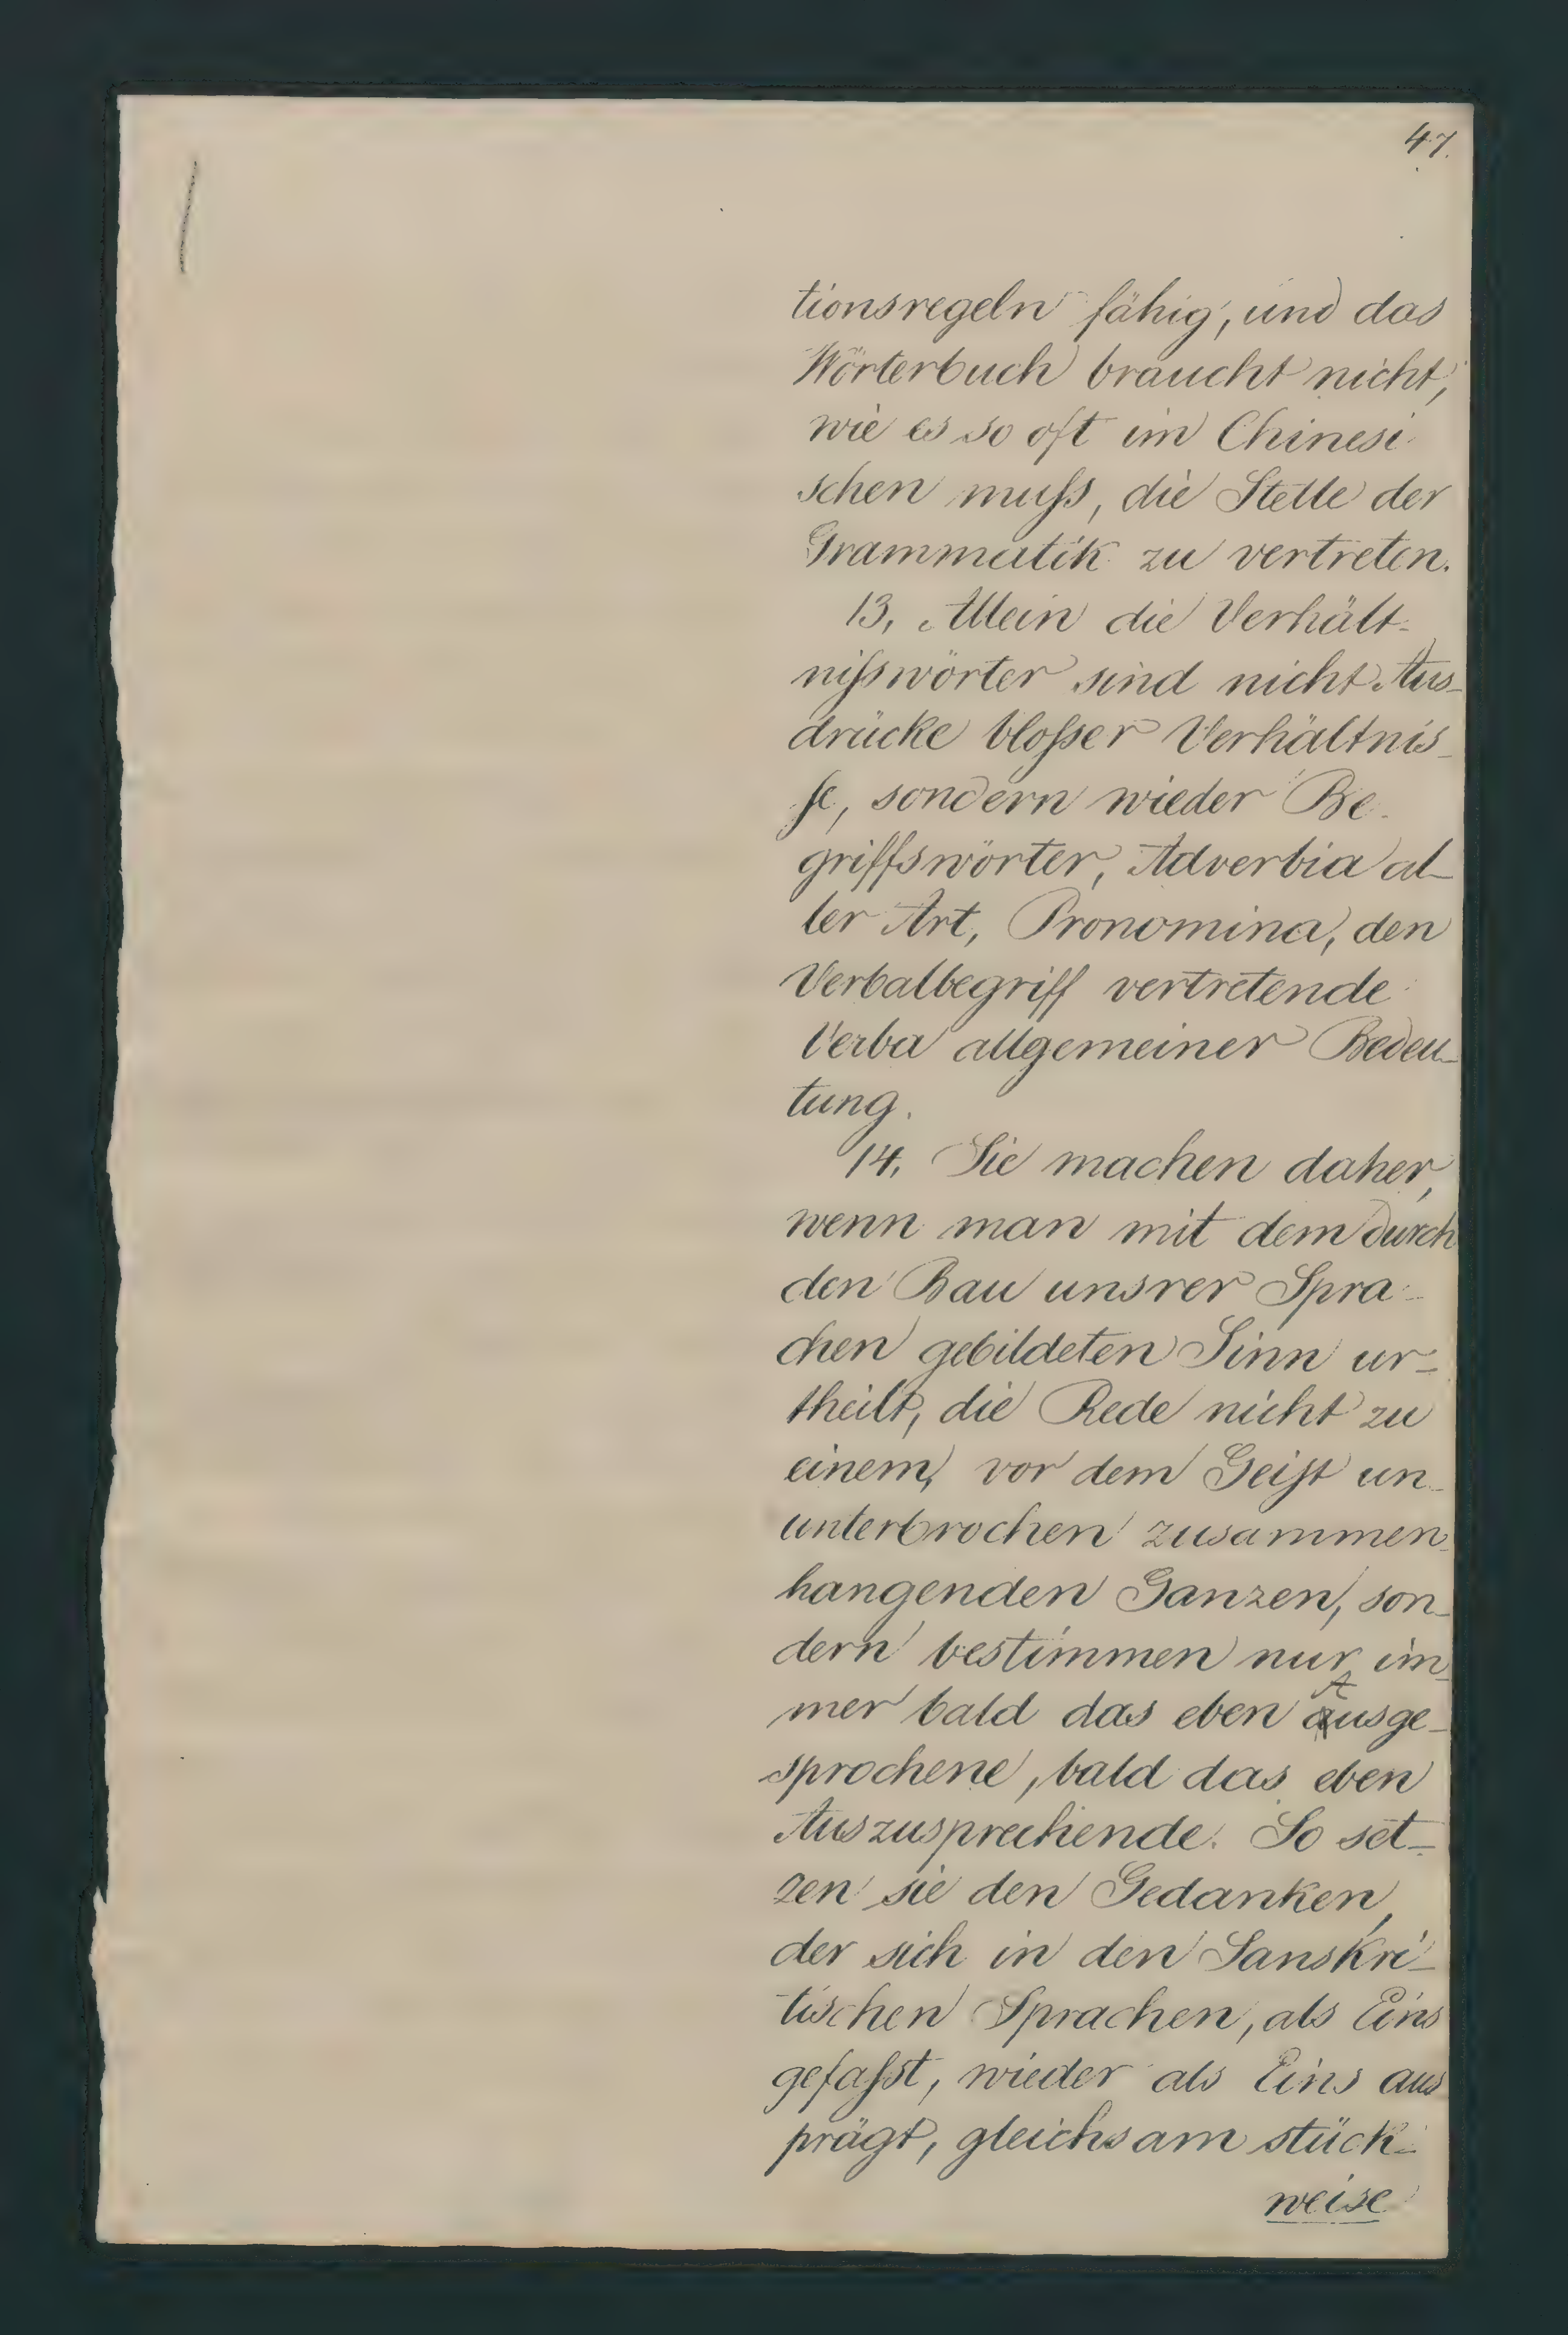 47.
tionsregeln fähig, und das
Wörterbuch braucht nicht,
wie es so oft im Chinesi
schen muſs, die Stelle der
Grammatik zu vertreten.
13, Allein die Verhält-
niſswörter sind nicht Aus-
drücke bloſser Verhältnis-
ſe, sondern wieder Be-
griffswörter, Adverbia al-
ler Art, Pronomina, den
Verbalbegriff vertretende
Verba allgemeiner Bedeu-
tung.
14. Sie machen daher,
wenn man mit dem durch
den Bau unsrer Spra-
chen gebildeten Sinn ur-
theilt, die Rede nicht zu
einem, vor dem Geiſt un-
unterbrochen zusammen-
hangenden Ganzen, son-
dern bestimmen nur im-
mer bald das eben Ausge-
sprochene, bald das eben
Auszusprechende. So set-
zen sie den Gedanken,
der sich in den Sanskri-
tischen Sprachen, als Eins
gefaſst, wieder als Eins aus
prägt, gleichsam stück-
weise